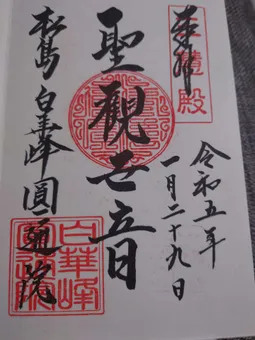 奉拝
三慧殿
令和五年
一月二十九日
聖觀世音
松島 白華峰圓通院
白華峰
圓通院